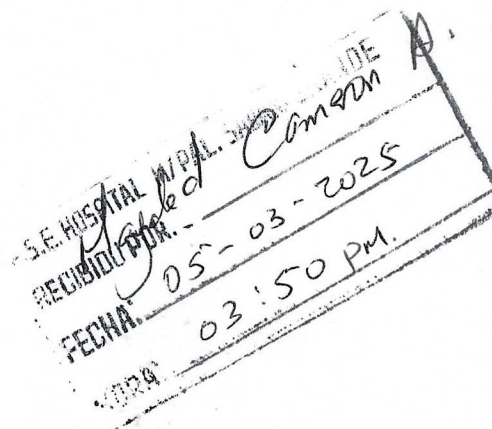 S.E. HOSPITAL M/PAL. DE
RECIBIDO POR. Camaron A.
FECHA. 05-03-2025
HORA 03:50 PM.